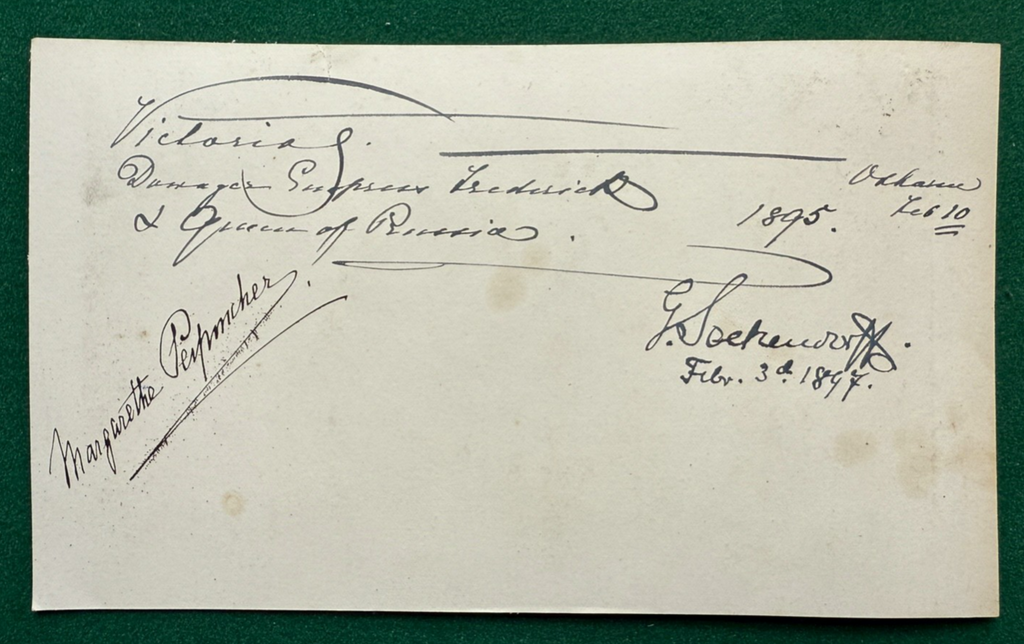 Victoria
Dowager Empress Frederick
& Queen of Prussia.
1895.
Osborne
Feb 10
G. Seckendorff.
Febr. 3d. 1897.
Margarethe Perponcher.